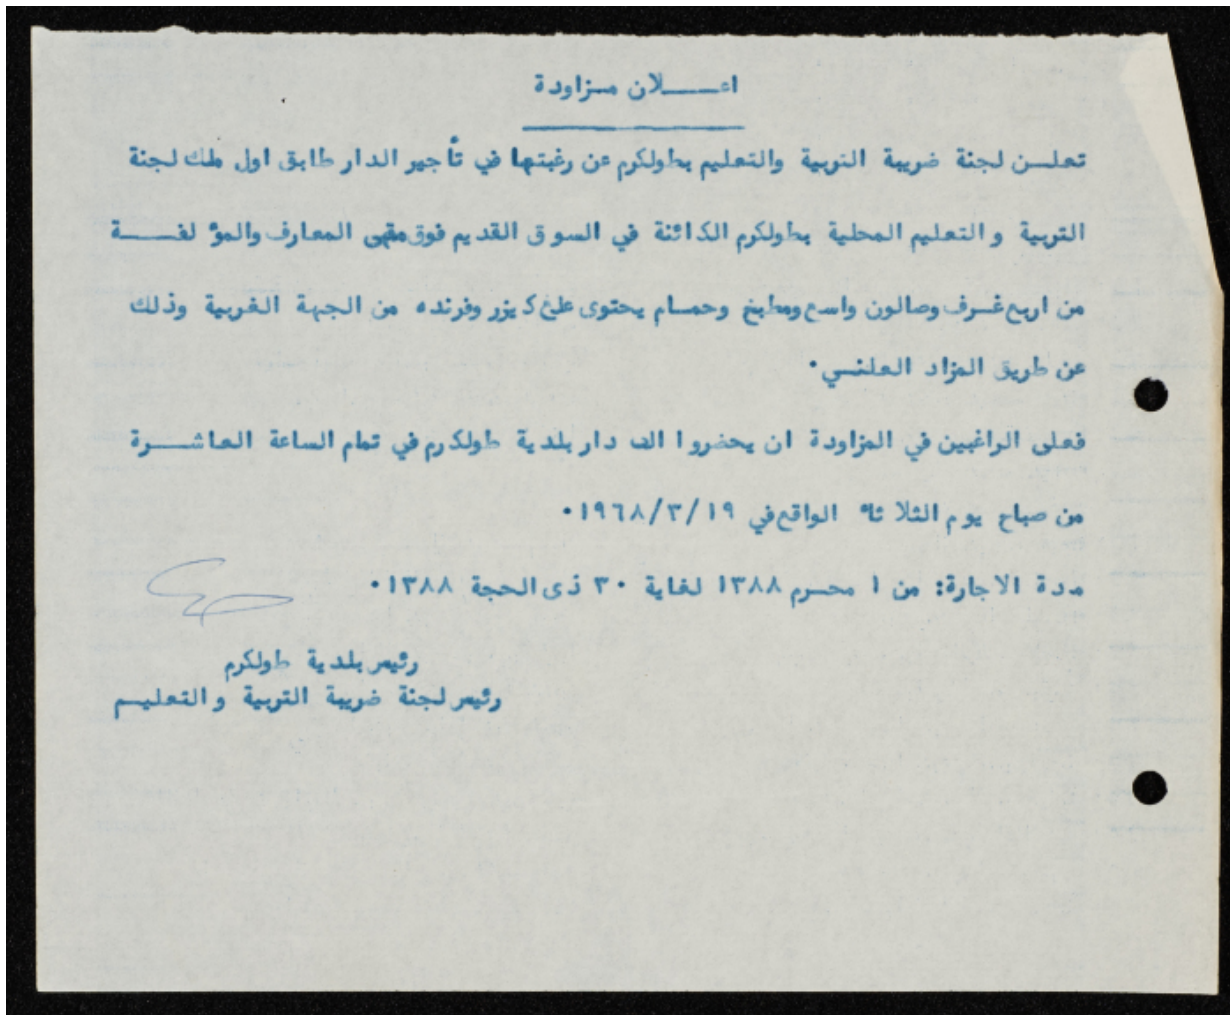 اعــــلان مـزاودة
تعلـن لجنة ضريبة التربية والتعليم بطولكرم عن رغبتها في تأجير الدار طابق اول ملك لجنة
التربية والتعليم المحلية بطولكرم الكائنة في السوق القديم فوق مقهى المعارف والمؤلفــــة
من اربع غـرف وصالون واسع ومطبخ وحمـام يحتوى على كيزر وفرنده من الجهة الغربية وذلك
عن طريق المزاد العلنـي.
فعلى الراغبين في المزاودة ان يحضروا الى دار بلدية طولكرم في تمام الساعة العاشـــرة
من صباح يوم الثلاثاء الواقع في ١٩٦٨/٣/١٩.
مدة الاجارة: من ١ محـرم ١٣٨٨ لغاية ٣٠ ذى الحجة ١٣٨٨.
رئيس بلدية طولكرم
رئيس لجنة ضريبة التربية والتعليـم